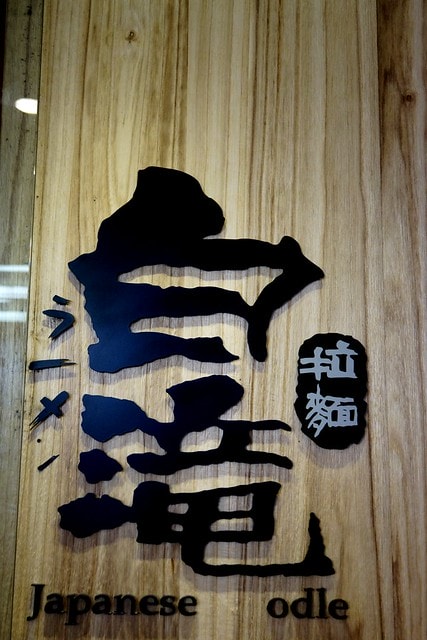 白滝
ラーメン
拉麵
Japanese odle